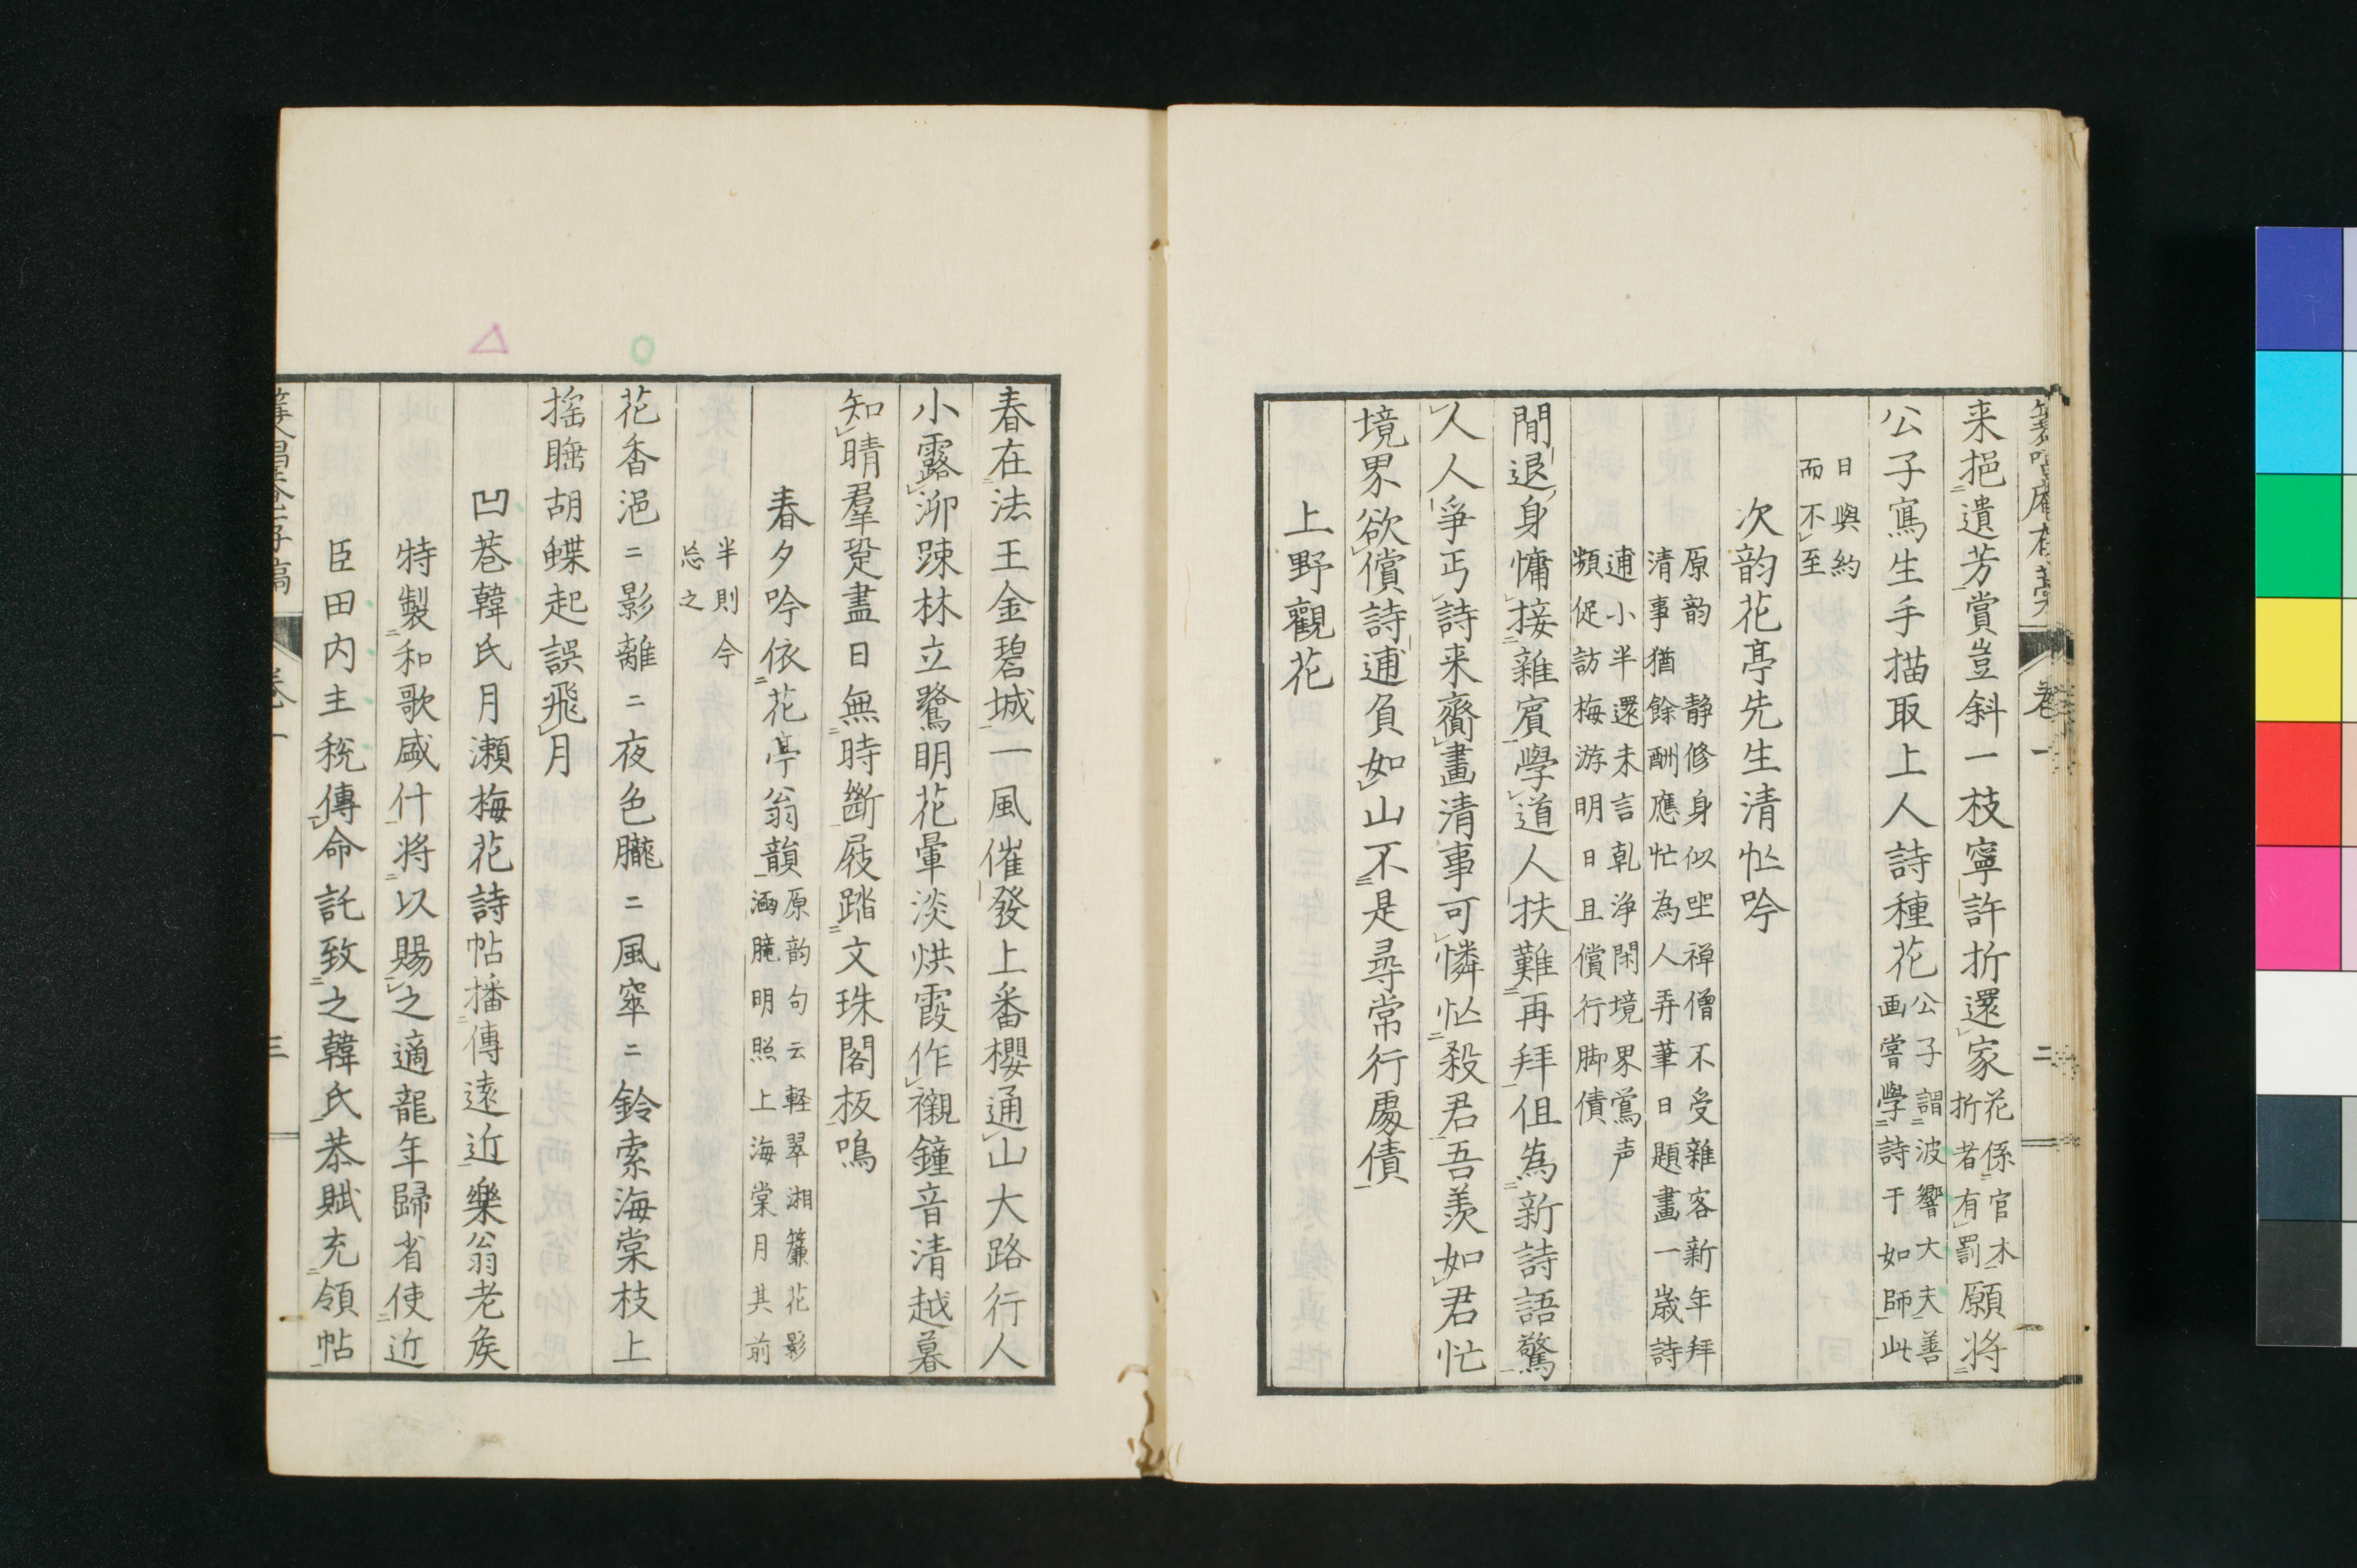 来挹遺芳賞豈斜一枝寧許折還家花係官木折者有罰願将
公子寫生手描取上人詩種花公子謂波響大夫善画嘗學詩于如師此
日與約而不至
次韵花亭先生清忙吟
原韵　静修身似坐禅僧不受雜客新年拜
清事猶餘酬應忙為人弄筆日題畫一歳詩
逋小半還未言乹浄閑境界鴬声
頻促訪梅游明日且償行脚債
閒退身慵接雜賓學道人扶難再拜但為新詩語驚
人人爭丐詩来齎畫清事可憐忙殺君吾羨如君忙
境界欲償詩逋負如山不是尋常行處債
上野觀花
春在法王金碧城一風催發上番櫻通山大路行人
小露泖踈林立鷺明花暈淡烘霞作襯鐘音清越暮
知晴羣跫盡日無時斷屐踏文珠閣板鳴
春夕吟依花亭翁韻原韵句云軽翠湘簾花影涵朧明照上海棠月其前
半則今忘之
花香浥二影離二夜色朧二風窣二鈴索海棠枝上
揺睡胡蝶起誤飛月
凹巷韓氏月瀬梅花詩帖播傳遠近樂翁老矦
特製和歌盛什将以賜之適龍年歸省使近
臣田内主税傳命託致之韓氏恭賦充領帖
卷一
三